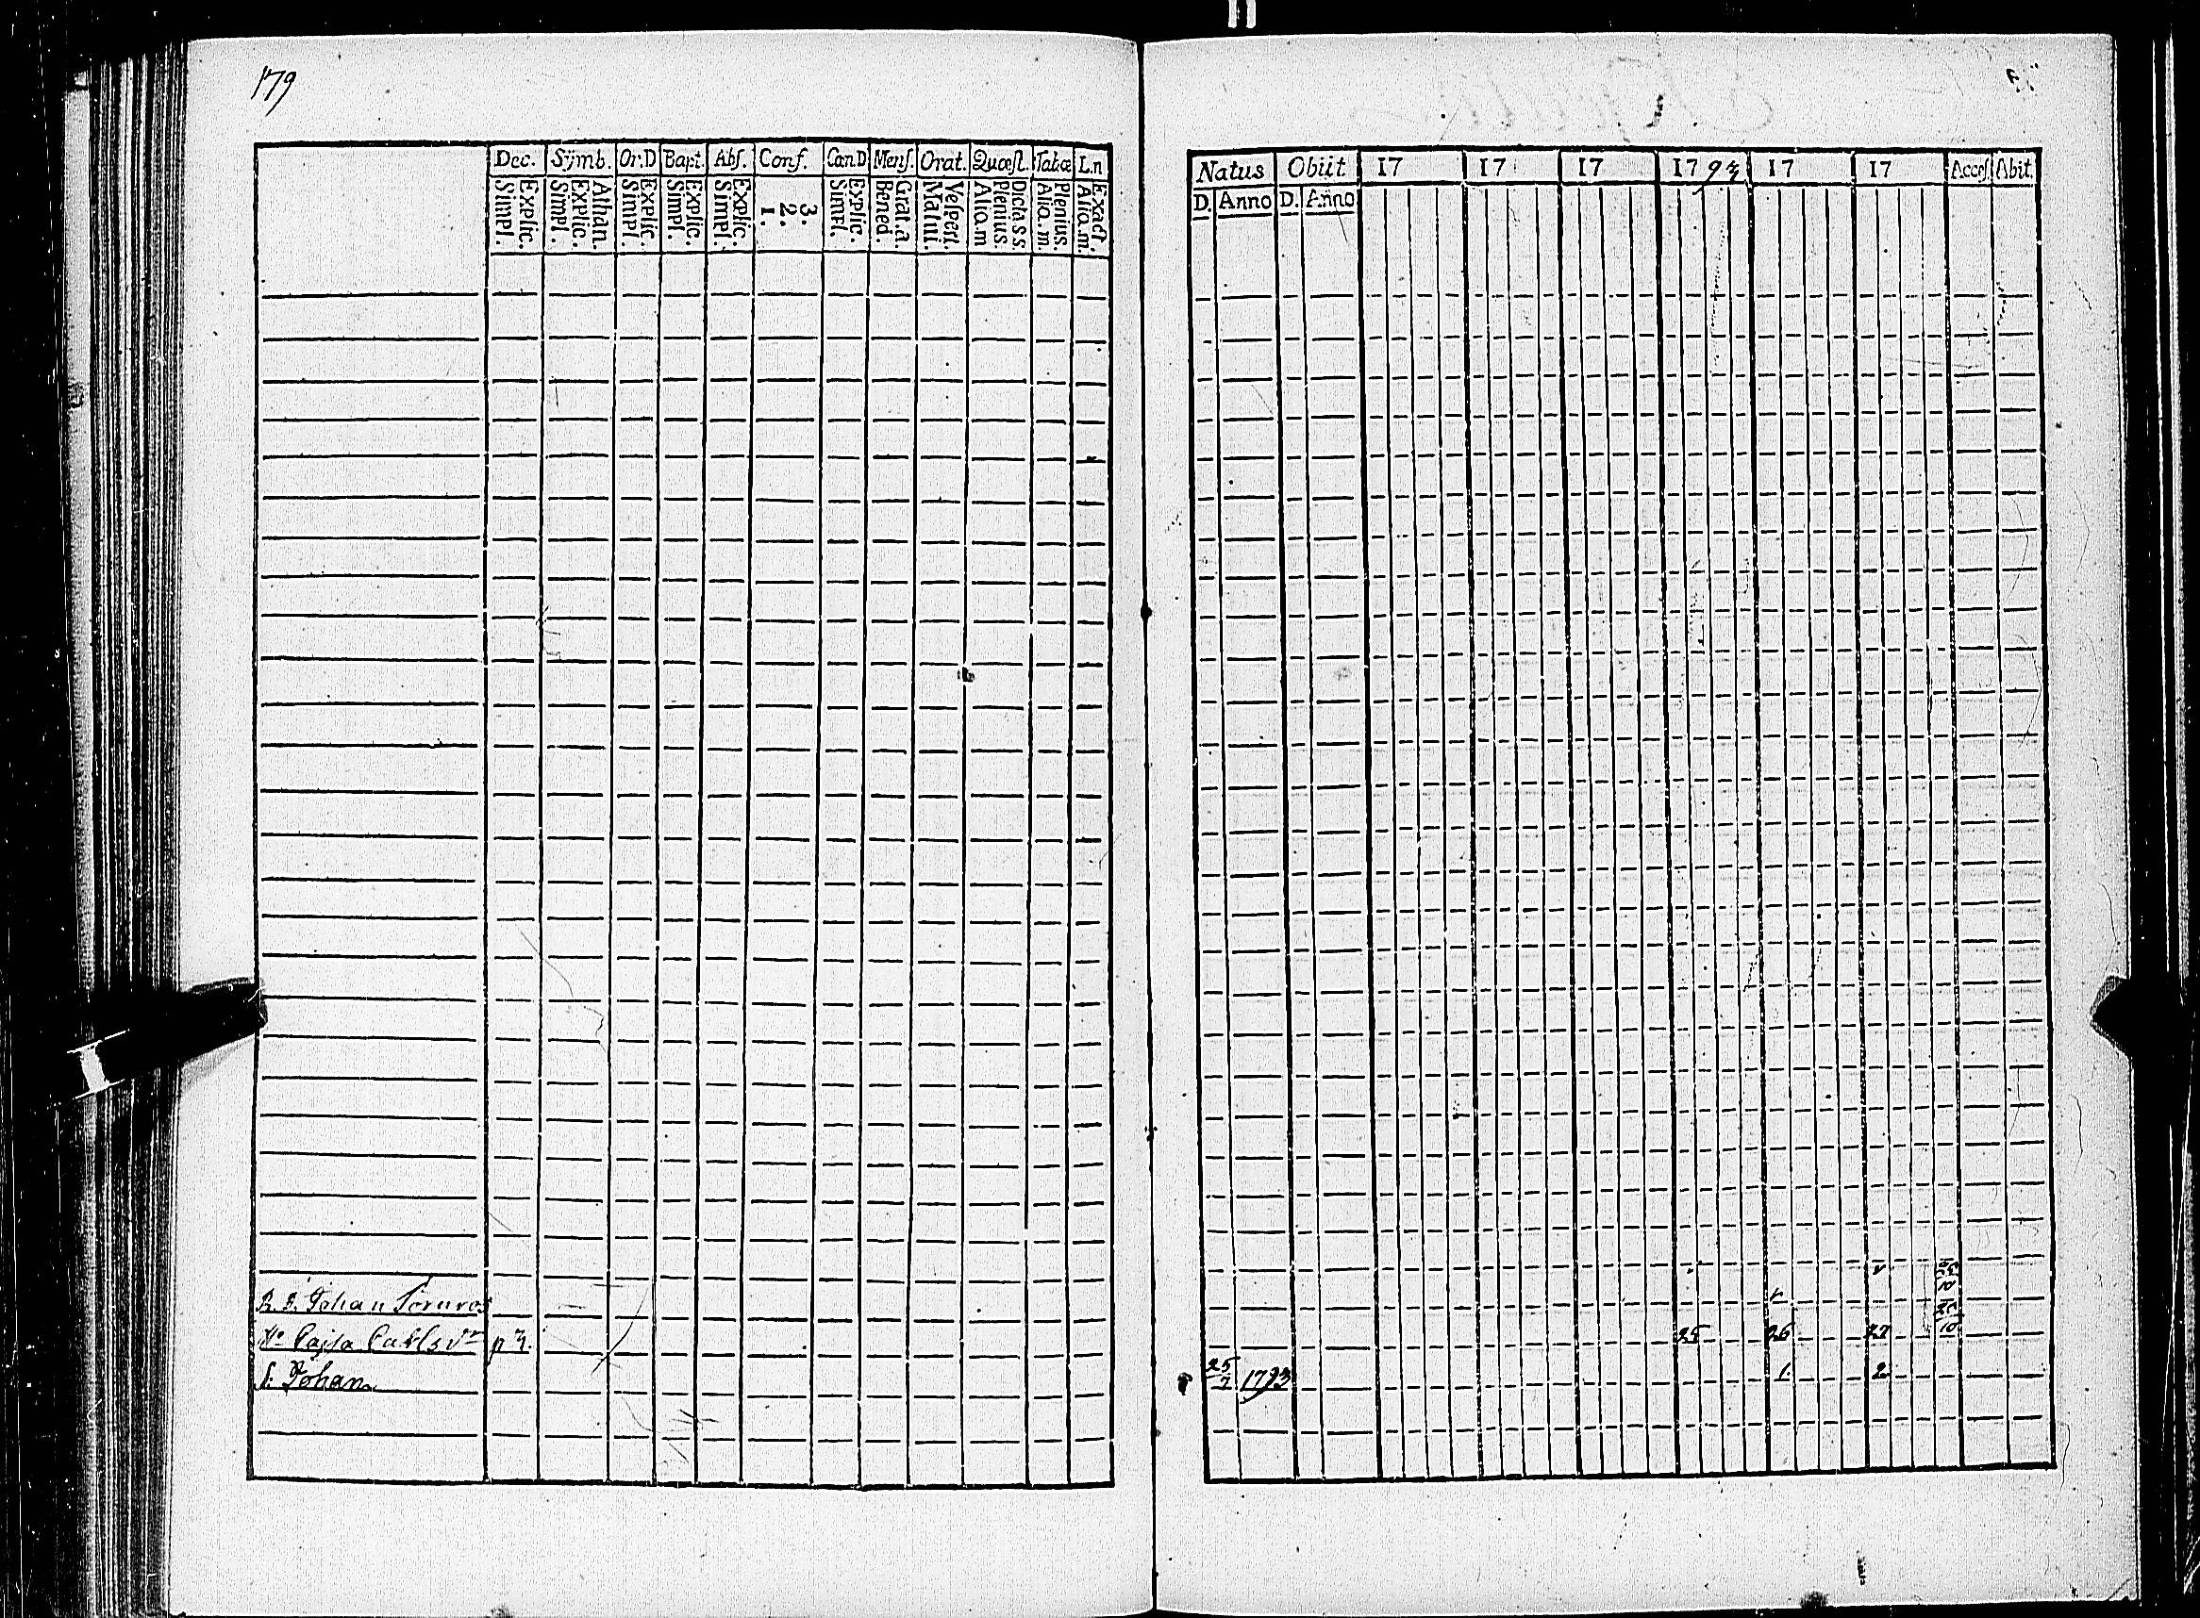 179
Dec. Symb. Or.D Bapt. Abs. Conf. Can D Mens. Orat. Quæst. Tabæ L.n
Explic. Simpl. Athan. Explic. Simpl. Explic. Simpl. Explic. Simpl. Explic. Simpl. 3. 2. 1. Explic. Simpl. Grat. a. Bened. Vespert. Matuti. Dicta s s. Plenius. Alio.m Plenius. Alio.m. Exact. Alio.m.
Johan Törnros
Hu Cajsa Carls dr p 3.
S: Johan
Natus Obiit 17 17 17 1793 17 17 Acces. Abit.
D. Anno D. Anno
25 26 27
25/7 1793 1. 2